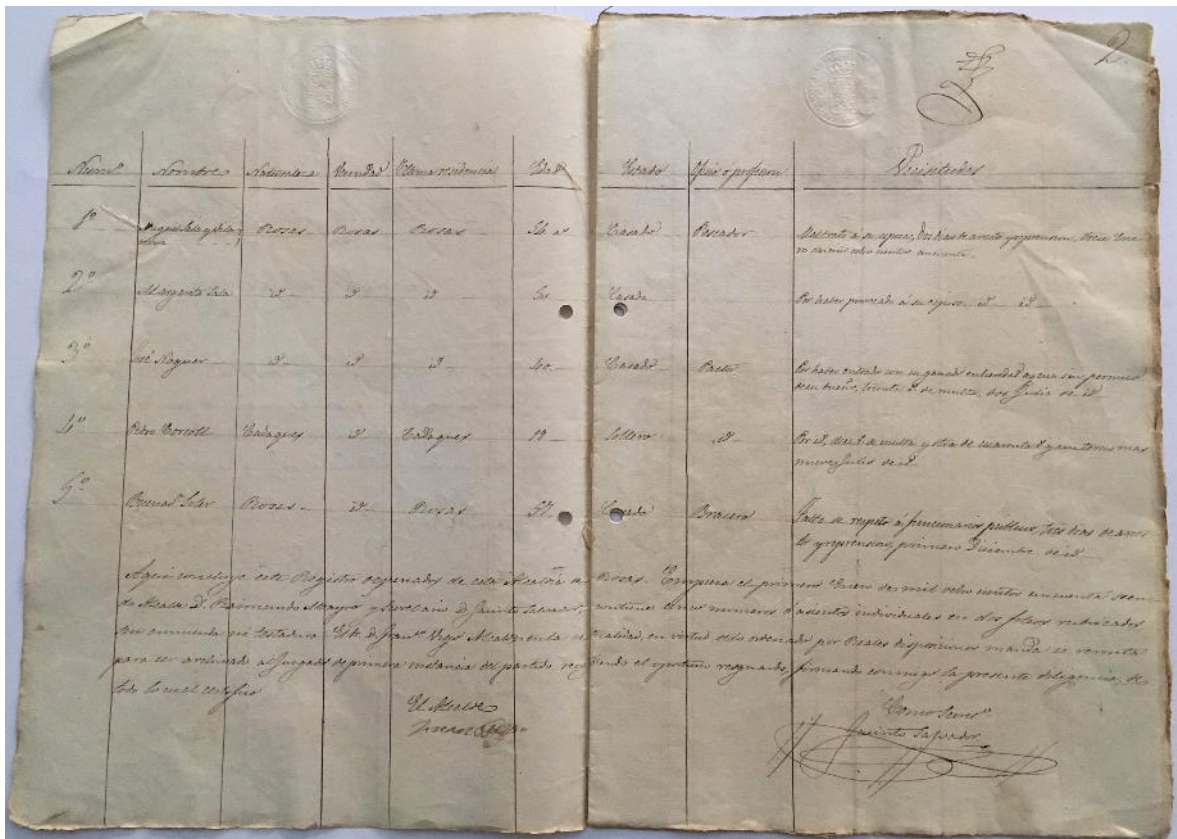 2
Num.º Nombre Naturaleza Vecindad Ultima residencia Edad Estado Oficio ó profesion Vicisitudes
1º Miguel Sala y Rosas Rosas Rosas 56 as Casado Pescador Maltrato a su esposa, Dos dias de arresto y reprension, Enero
de mil ocho cientos cincuenta
2º Margarita Sala id id id Casada Por haber provocado á su esposo id id
3º José Noguer id id id 40 Casado Pastor Por haber entrado con su ganado en heredad agena sin permiso
de su dueño, treinta r. de multa, dos Julio de id
4º Pedro Cadaques id Cadaques 19 Soltero id Por id, diez r. de multa y otra de cuarenta r. y
nueve Julio de id
5º Buenav.ª Soler Rosas id Rosas 57 Casado Bracero Falta de respeto á funcionarios publicos, tres dias de arres
to y reprension, primero Diciembre de id
Aqui concluye este Registro de penados de esta Alcaldia de Rosas. Empieza el primero Enero de mil ocho cientos cincuenta siendo
Alcalde D. Raimundo y Secretario D. Jacinto Salvador, contiene cinco numeros ó asientos individuales en dos folios rubricados
sin enmienda ni testadura. El Sr. D. Fran.co Alcalde en la actualidad, en virtud de lo ordenado por Reales disposiciones manda se remita
para ser archivado al Juzgado de primera instancia del partido, recibiendo el oportuno resguardo, firmando conmigo la presente diligencia, de
todo lo cual certifico
El Alcalde
Como Secret.º
Jacinto Salvador